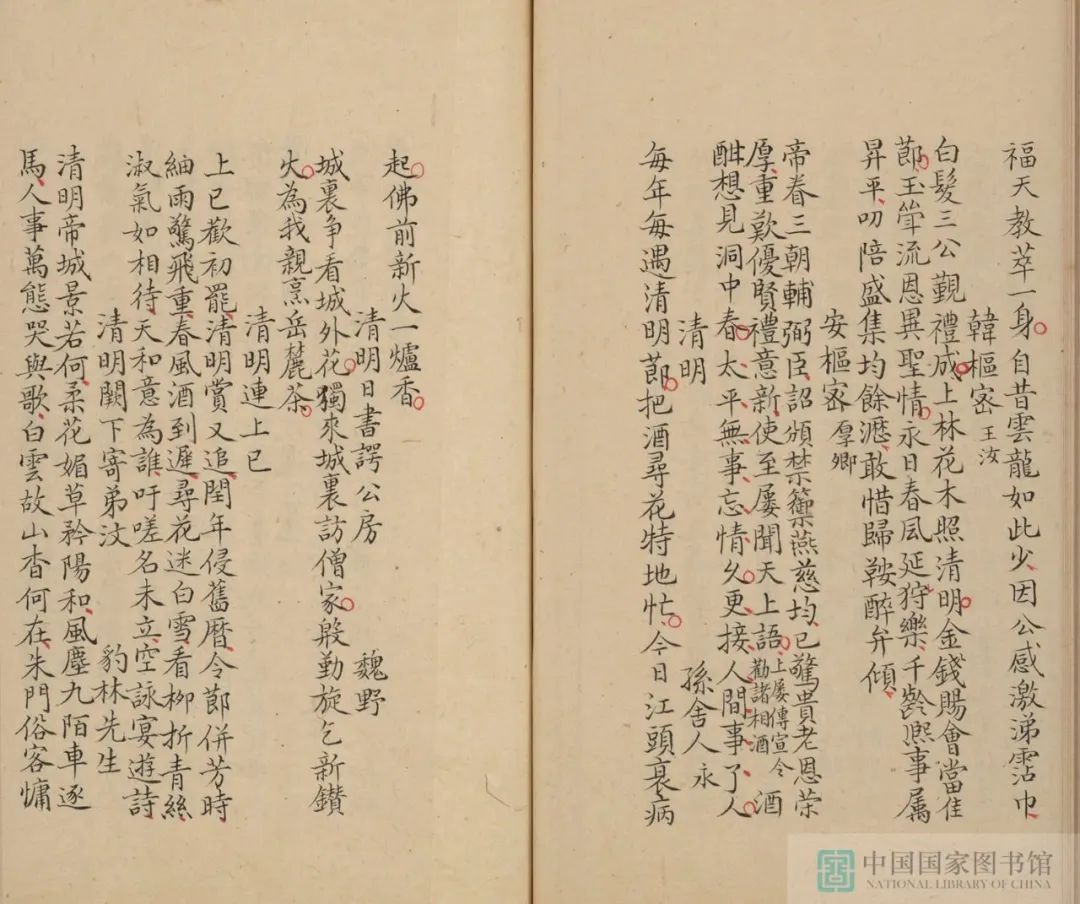 福天教萃一身自昔雲龍如此少因公感激涕霑巾
韓樞密 王汝
白髮三公覲禮成上林花木照清明金錢賜會當佳
節玉斝流恩異聖情永日春風延狩樂千齡熙事属
昇平叨陪盛集均餘瀝敢惜歸鞍醉弁傾
安樞密 厚卿
帝眷三朝輔弼臣詔頒禁籞燕慈均已驚貴老恩荣
厚重歎優賢禮意新使至屡聞天上語 上屡傳宣令勸諸相酒 酒
酣想見洞中春太平無事忘情久更接人間事了人
清明 孫舍人永
每年每遇清明節把酒尋花特地忙今日江頭衰病
起佛前新火一爐香
清明日書諤公房 魏野
城裏争看城外花獨來城裏訪僧家殷勤旋乞新鑚
火為我親烹岳麓茶
清明連上巳
上巳歡初罷清明賞又追閏年侵舊曆令節併芳時
細雨驚飛重春風酒到遲尋花迷白雪看柳折青絲
淑氣如相待天和意為誰吁嗟名未立空詠宴遊詩
清明闕下寄弟汶 豹林先生
清明帝城景若何柔花媚草矜陽和風塵九陌車逐
馬人事萬態哭與歌白雲故山杳何在朱門俗客慵
中国国家图书馆
NATIONAL LIBRARY OF CHINA